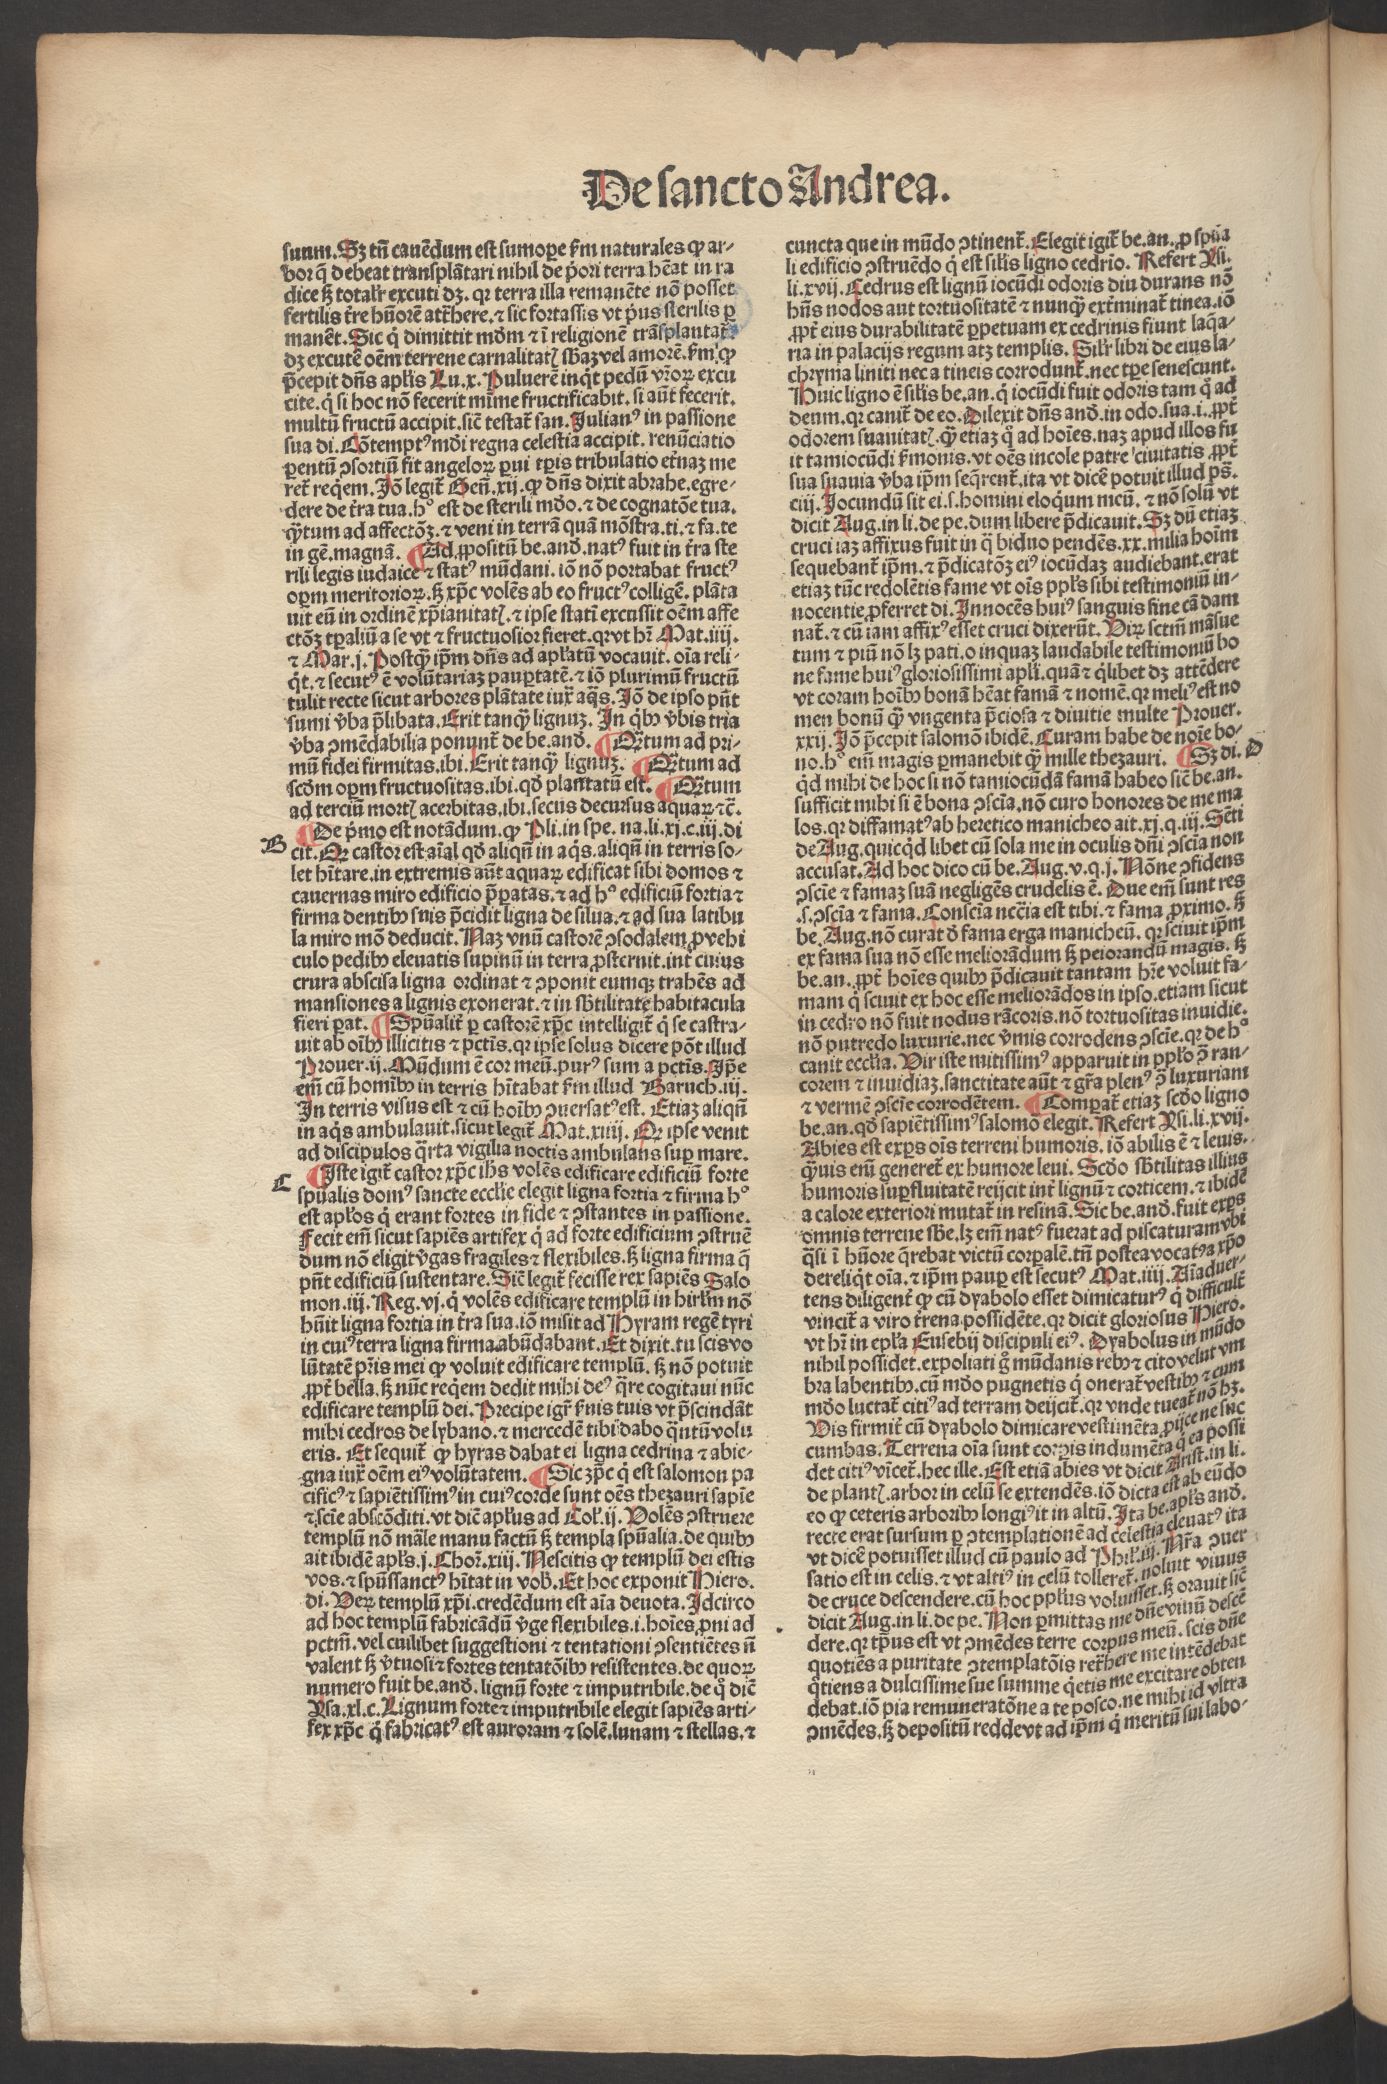 De sancto Andrea.
suum. Sz tñ cauēdum est sumope ẜm naturales ꝙ ar-
bor q̄ debeat transplātari nihil de p̄ori terra hēat in ra
dice sꝫ totalr̄ excuti dꝫ. qꝛ terra illa remanēte nō posset
fertilis t̄re hūorē attr̄here. ⁊ sic fortassis vt p̄us sterilis ꝑ
manēt. Sic q̇ dimittit mdm̄ ⁊ ī religionē trāsplantat̄
dꝫ excutē oēm terrene carnalitatꝭ sb̄aꝫ vel amorē. ẜm ꝙ
p̄cepit dn̄s apl̄is Lu. x. Puluerē inq̇t pedū vr̄oꝝ excu
cite. q̇ si hoc nō fecerit mīme fructificabit. si aūt fecerit.
multū fructū accipit. sicē testat̄ san. Julianꝰ in passione
sua di. Cōtemptꝰ mūdi regna celestia accipit. renūciatio
ꝑentū ↄsortiū fit angeloꝝ ꝑui tꝑis tribulatio et̄naꝫ me
ret̄ req̇em. Jō legit̄ Geñ. xij. ꝙ dn̄s dixit abrahe. egre-
dere de t̄ra tua. hꝰ est de sterili mūdo. ⁊ de cognatōe tua.
q̄tum ad affectōꝫ. ⁊ veni in terrā quā mōstra. ti. ⁊ fa. te
in gē. magnā. ¶ Ad ꝓpositū be. and̄. natꝰ fuit in t̄ra ste
rili legis iudaice ⁊ statꝰ mūdani. iō nō portabat fructꝰ
oꝑm meritorioꝝ. sꝫ xp̄c volēs ab eo fructꝰ colligē. plāta
uit eū in ordinē xp̄ianitatꝭ. ⁊ ipse statī excussit oēm affe
ctōꝫ tꝑaliū a se vt ⁊ fructuosior fieret. qꝛ vt hr̄ Mat. iiij.
⁊ Mar. j. Postq̄ ip̄m dn̄s ad apl̄atū vocauit. oīa reli-
q̇t. ⁊ secutꝰ ē volūtariaꝫ pauꝑtatē. ⁊ iō plurimū fructū
tulit recte sicut arbores plātate iux̄ aq̄s. Jō de ipso pn̄t
sumi v̄ba p̄libata. Erit tanq̄ lignuꝫ. In q̇bꝰ v̄bis tria
v̄ba ↄmēdabilia ponunt̄ de be. and̄. ¶ Q̄tum ad pri-
mū fidei firmitas. ibi. Erit tanq̄ lignuꝫ. ¶ Q̄tum ad
scd̄m oꝑm fructuositas. ibi. qd̄ plantatū est. ¶ Q̄tum
ad terciū mortꝭ acerbitas. ibi. secus decursus aquaꝝ. ⁊c̄.
B
¶ De p̄mo est notādum. ꝙ Pli. in spe. na. li. xj. c. iij. di
cit. Qꝛ castor est aīal qd̄ aliqn̄ in aq̇s. aliqn̄ in terris so-
let hītare. in extremis aūt aquaꝝ edificat sibi domos ⁊
cauernas miro edificio p̄paratas. ⁊ ad hꝰ edificiū fortia ⁊
firma dentibꝰ suis p̄cidit ligna de silua. ⁊ ad sua latibu
la miro mō deducit. Naꝫ vnū castorē ↄsodalem ꝓ vehi
culo pedibꝰ eleuatis supinū in terra ꝓsternit. int̄ cuius
crura abscisa ligna ordinat ⁊ ↄponit eumqꝫ trahēs ad
mansiones a lignis exonerat. ⁊ in sb̄tilitate habitacula
fieri parat. ¶ Spūalit̄ ꝑ castorē xp̄c intelligit̄ q̇ se castra-
uit ab oībꝰ illicitis ⁊ pctīs. qꝛ ipse solus dicere pōt illud
Prouer. ij. Mūdum ē cor meū. purꝰ sum a pctīs. Ip̄e
em̄ cū homībꝰ in terris hītabat ẜm illud Baruch. iij.
In terris visus est ⁊ cū hoībꝰ ↄuersatꝰ est. Etiaꝫ aliqn̄
in aq̇s ambulauit. sicut legit̄ Mat. xiiij. Qꝛ ipse venit
ad discipulos q̄rta vigilia noctis ambulans suꝑ mare.
C
¶ Iste igit̄ castor xp̄c ihs volēs edificare edificiū forte
spūalis domꝰ sancte eccl̄ie elegit ligna fortia ⁊ firma hꝰ
est apl̄os q̇ erant fortes in fide ⁊ ↄstantes in passione.
Fecit em̄ sicut sapiēs artifex q̇ ad forte edificium ↄstruē
dum nō eligit v̄gas fragiles ⁊ flexibiles. sꝫ ligna firma q̄
pn̄t edificiū sustentare. Sic legit̄ fecisse rex sapiēs Salo
mon. iij. Reg. vj. q̇ volēs edificare templū in hirl̄m nō
hūit ligna fortia in t̄ra sua. iō misit ad Hyram regē tyri
in cuiꝰ terra ligna firma abūdabant. Et dixit. tu scis vo
lūtatē pr̄is mei ꝙ voluit edificare templū. sꝫ nō potuit
ꝓpt̄ bella. sꝫ nūc req̇em dedit mihi deꝰ q̄re cogitaui nūc
edificare templū dei. Precipe igr̄ ẜuis tuis vt p̄scindāt
mihi cedros de lybano. ⁊ mercedē tibi dabo q̄ntū volu
eris. Et sequit̄ ꝙ hyras dabat ei ligna cedrina ⁊ abie-
gna iux̄ oēm eiꝰ volūtatem. ¶ Sic xp̄c q̇ est salomon pa
cificꝰ ⁊ sapiētissimꝰ in cuiꝰ corde sunt oēs thezauri sapīe
⁊ scīe abscōditi. vt dicē apl̄us ad Col̄. ij. Volēs ↄstruere
templū nō māle manu factū sꝫ templa spūalia. de quibꝰ
ait ibidē apl̄s. j. Chor̄. xiij. Nescitis ꝙ templū dei estis
vos. ⁊ spūssanctꝰ hītat in vob̄. Et hoc exponit Hiero.
di. Veꝝ templū xp̄i. credēdum est aīa deuota. Idcirco
ad hoc templū fabricādū v̄ge flexibiles. i. hoīes ꝓni ad
pctm̄. vel cuilibet suggestioni ⁊ tentationi ↄsentiētes nō
valent sꝫ v̄tuosi ⁊ fortes tentatōibꝰ resistentes. de quoꝝ
numero fuit be. and̄. lignū forte ⁊ imputribile. de q̊ dicē
Ysa. xl. c. Lignum forte ⁊ imputribile elegit sapiēs arti-
fex xp̄c q̇ fabricatꝰ est auroram ⁊ solē. lunam ⁊ stellas. ⁊
cuncta que in mūdo ↄtinent̄. Elegit igit̄ be. an. ꝓ spūa
li edificio ↄstruēdo q̇ est sil̄is ligno cedrīo. Refert Ysi.
li. xvij. Cedrus est lignū iocūdi odoris diu durans nō
hn̄s nodos aut tortuositatē ⁊ nunq̄ ext̄minat̄ tinea. iō
ꝓpt̄ eius durabilitatē ꝑpetuam ex cedrinis fiunt laq̄a-
ria in palacijs regum atqꝫ templis. Sil̄r libri de eius la-
chryma liniti nec a tineis corrodunt̄. nec tꝑe senescunt.
Huic ligno ē sil̄is be. an. q̇ iocūdi fuit odoris tam q̇ ad
deum. qꝛ canit̄ de eo. Dilexit dn̄s and̄. in odo. sua. i. ꝓpt̄
odorem suauitatꝭ. q̄ etiaꝫ q̊ ad hoīes. naꝫ apud illos fu
it tam iocūdi ẜmonis. vt oēs incole patre ciuitatis ꝓpt̄
sua suauia v̄ba ip̄m seq̄rent̄. ita vt dicē potuit illud ps̄.
ciij. Jocundū sit ei. s. homini eloq̇um meū. ⁊ nō solū vt
dicit Aug. in li. de pe. dum libere p̄dicauit. Sꝫ dū etiaꝫ
cruci iaꝫ affixus fuit in q̄ biduo pendēs. xx. milia hoīm
sequebant̄ ip̄m. ⁊ p̄dicatōꝫ eiꝰ iocūdaꝫ audiebant. erat
etiaꝫ tūc redolētis fame vt oīs ppl̄s sibi testimoniū in-
nocentie ꝓferret di. Innocēs huiꝰ sanguis sine cā dam
nat̄. ⁊ cū iam affixꝰ esset cruci dixerūt. Viꝝ sctm̄ māsue
tum ⁊ piū nō lꝫ pati. o inquaꝫ laudabile testimoniū bo
ne fame huiꝰ gloriosissimi apl̄i. quā ⁊ q̇libet dꝫ attēdere
vt coram hoībꝰ bonā hēat famā ⁊ nomē. qꝛ meliꝰ est no
men bonū q̄ vngenta p̄ciosa ⁊ diuitie multe Prouer.
xxij. Jō p̄cepit salomō ibidē. Curam habe de noīe bo-
no. hꝰ em̄ magis ꝑmanebit q̄ mille thezauri. ¶ Sꝫ di. D
q̇d mihi de hoc si nō tam iocūdā famā habeo sicē be. an.
sufficit mihi si ē bona ↄsciā. nō curo honores de me ma
los. qꝛ diffamatꝰ ab heretico manicheo ait. xj. q. iij. Sēti
de Aug. quicq̇d libet cū sola me in oculis dn̄i ↄsciā non
accusat. Ad hoc dico cū be. Aug. v. q. j. Nōne ↄfidens
ↄscīe ⁊ famaꝫ suā negligēs crudelis ē. Due em̄ sunt res
.s. ↄscīa ⁊ fama. Conscīa neccīa est tibi. ⁊ fama ꝓximo. sꝫ
be. Aug. nō curat d̄ fama erga manicheū. qꝛ sciuit ip̄m
ex fama sua nō esse meliorādum sꝫ peiorandū magis. sꝫ
be. an. ꝓpt̄ hoīes quibꝰ p̄dicauit tantam hr̄e voluit fa-
mam q̇ sciuit ex hoc esse meliorādos in ipso. etiam sicut
in cedro nō fuit nodus rācoris. nō tortuositas inuidie.
nō putredo luxurie. nec v̄mis corrodens ↄscīe. qꝛ de hꝰ
canit eccl̄ia. Vir iste mitissimꝰ apparuit in ppl̄o ↄ̄ ran-
corem ⁊ inuidiaꝫ. sanctitate aūt ⁊ gr̄a plenꝰ ↄ̄ luxuriam
⁊ vermē ↄscīe corrodētem. ¶ Comparat̄ etiaꝫ scd̄o ligno
be. an. qd̄ sapiētissimꝰ salomō elegit. Refert Ysi. li. xvij.
Abies est exꝑs oīs terreni humoris. iō abilis ē ⁊ leuis.
q̄uis em̄ generet̄ ex humore leui. Scd̄o sb̄tilitas illius
humoris suꝑfluitatē reijcit int̄ lignū ⁊ corticem. ⁊ ibidē
a calore exteriori mutat̄ in resinā. Sic be. and̄. fuit exꝑs
omnis terrene sb̄e. lꝫ em̄ natꝰ fuerat ad piscaturam vbi
q̄si ī hūore q̄rebat victū corꝑalē. tn̄ postea vocatꝰ a xp̄o
dereliq̇t oīa. ⁊ ip̄m pauꝑ est secutꝰ Mat. iiij. Aīaduer-
tens diligent̄ ꝙ cū dyabolo esset dimicaturꝰ q̇ difficult̄
vincit̄ a viro t̄rena possidēte. qꝛ dicit gloriosus Hiero.
vt hr̄ in epl̄a Eusebij discipuli eiꝰ. Dyabolus in mūdo
nihil possidet. expoliati g̊ mūdanis rebꝰ ⁊ cito velut vm
bra labentibꝰ. cū mūdo pugnetis q̇ onerat̄ vestibꝰ ⁊ cum
mūdo luctat̄ citiꝰ ad terram deijcit̄. qꝛ vnde tueat̄ nō hꝫ.
Vis firmit̄ cū dyabolo dimicare vestimēta ꝓijce ne suc
cumbas. Terrena oīa sunt corꝑis indumēta q̇ ea possi
det citiꝰ vīcet̄. hec ille. Est etiā abies vt dicit Arist. in li.
de plantꝭ. arbor in celū se extendēs. iō dicta est ab eūdo
eo ꝙ ceteris arboribꝰ longiꝰ it in altū. Ita be. apl̄s and̄.
recte erat sursum ꝑ ↄtemplationē ad celestia eleuatꝰ ita
vt dicē potuisset illud cū paulo ad Phil̄. iij. Nr̄a ↄuer
satio est in celis. ⁊ vt altiꝰ in celū tolleret̄. noluit viuus
de cruce descendere. cū hoc ppl̄us voluisset. sꝫ orauit sicē
dicit Aug. in li. de pe. Non ꝑmittas me dn̄e viuū descē
dere. qꝛ tp̄us est vt ↄmēdes terre corpus meū. scis dn̄e
quotiēs a puritate ↄtemplatōis ret̄here me intēdebat
q̄tiens a dulcissime sue summe q̇etis me excitare obten
debat. iō pia remuneratōne a te posco. ne mihi id vltra
ↄmēdes. sꝫ depositū redde vt ad ip̄m q̇ meritū sui labo-